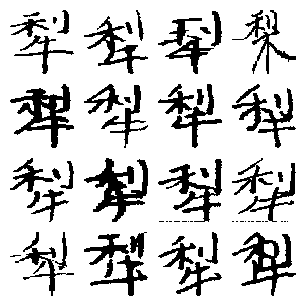 犁犁犁梨
犁犁犁犁
犁犁犁犁
犁犁犁犁